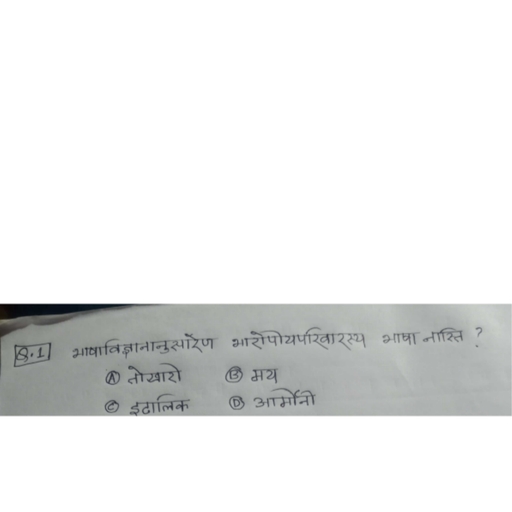 Q.1 भाषाविज्ञानानुसारेण भारोपीयपरिवारस्य भाषा नास्ति ?
Ⓐ तोखारी Ⓑ मय
Ⓒ इटालिक Ⓓ आर्मीनी